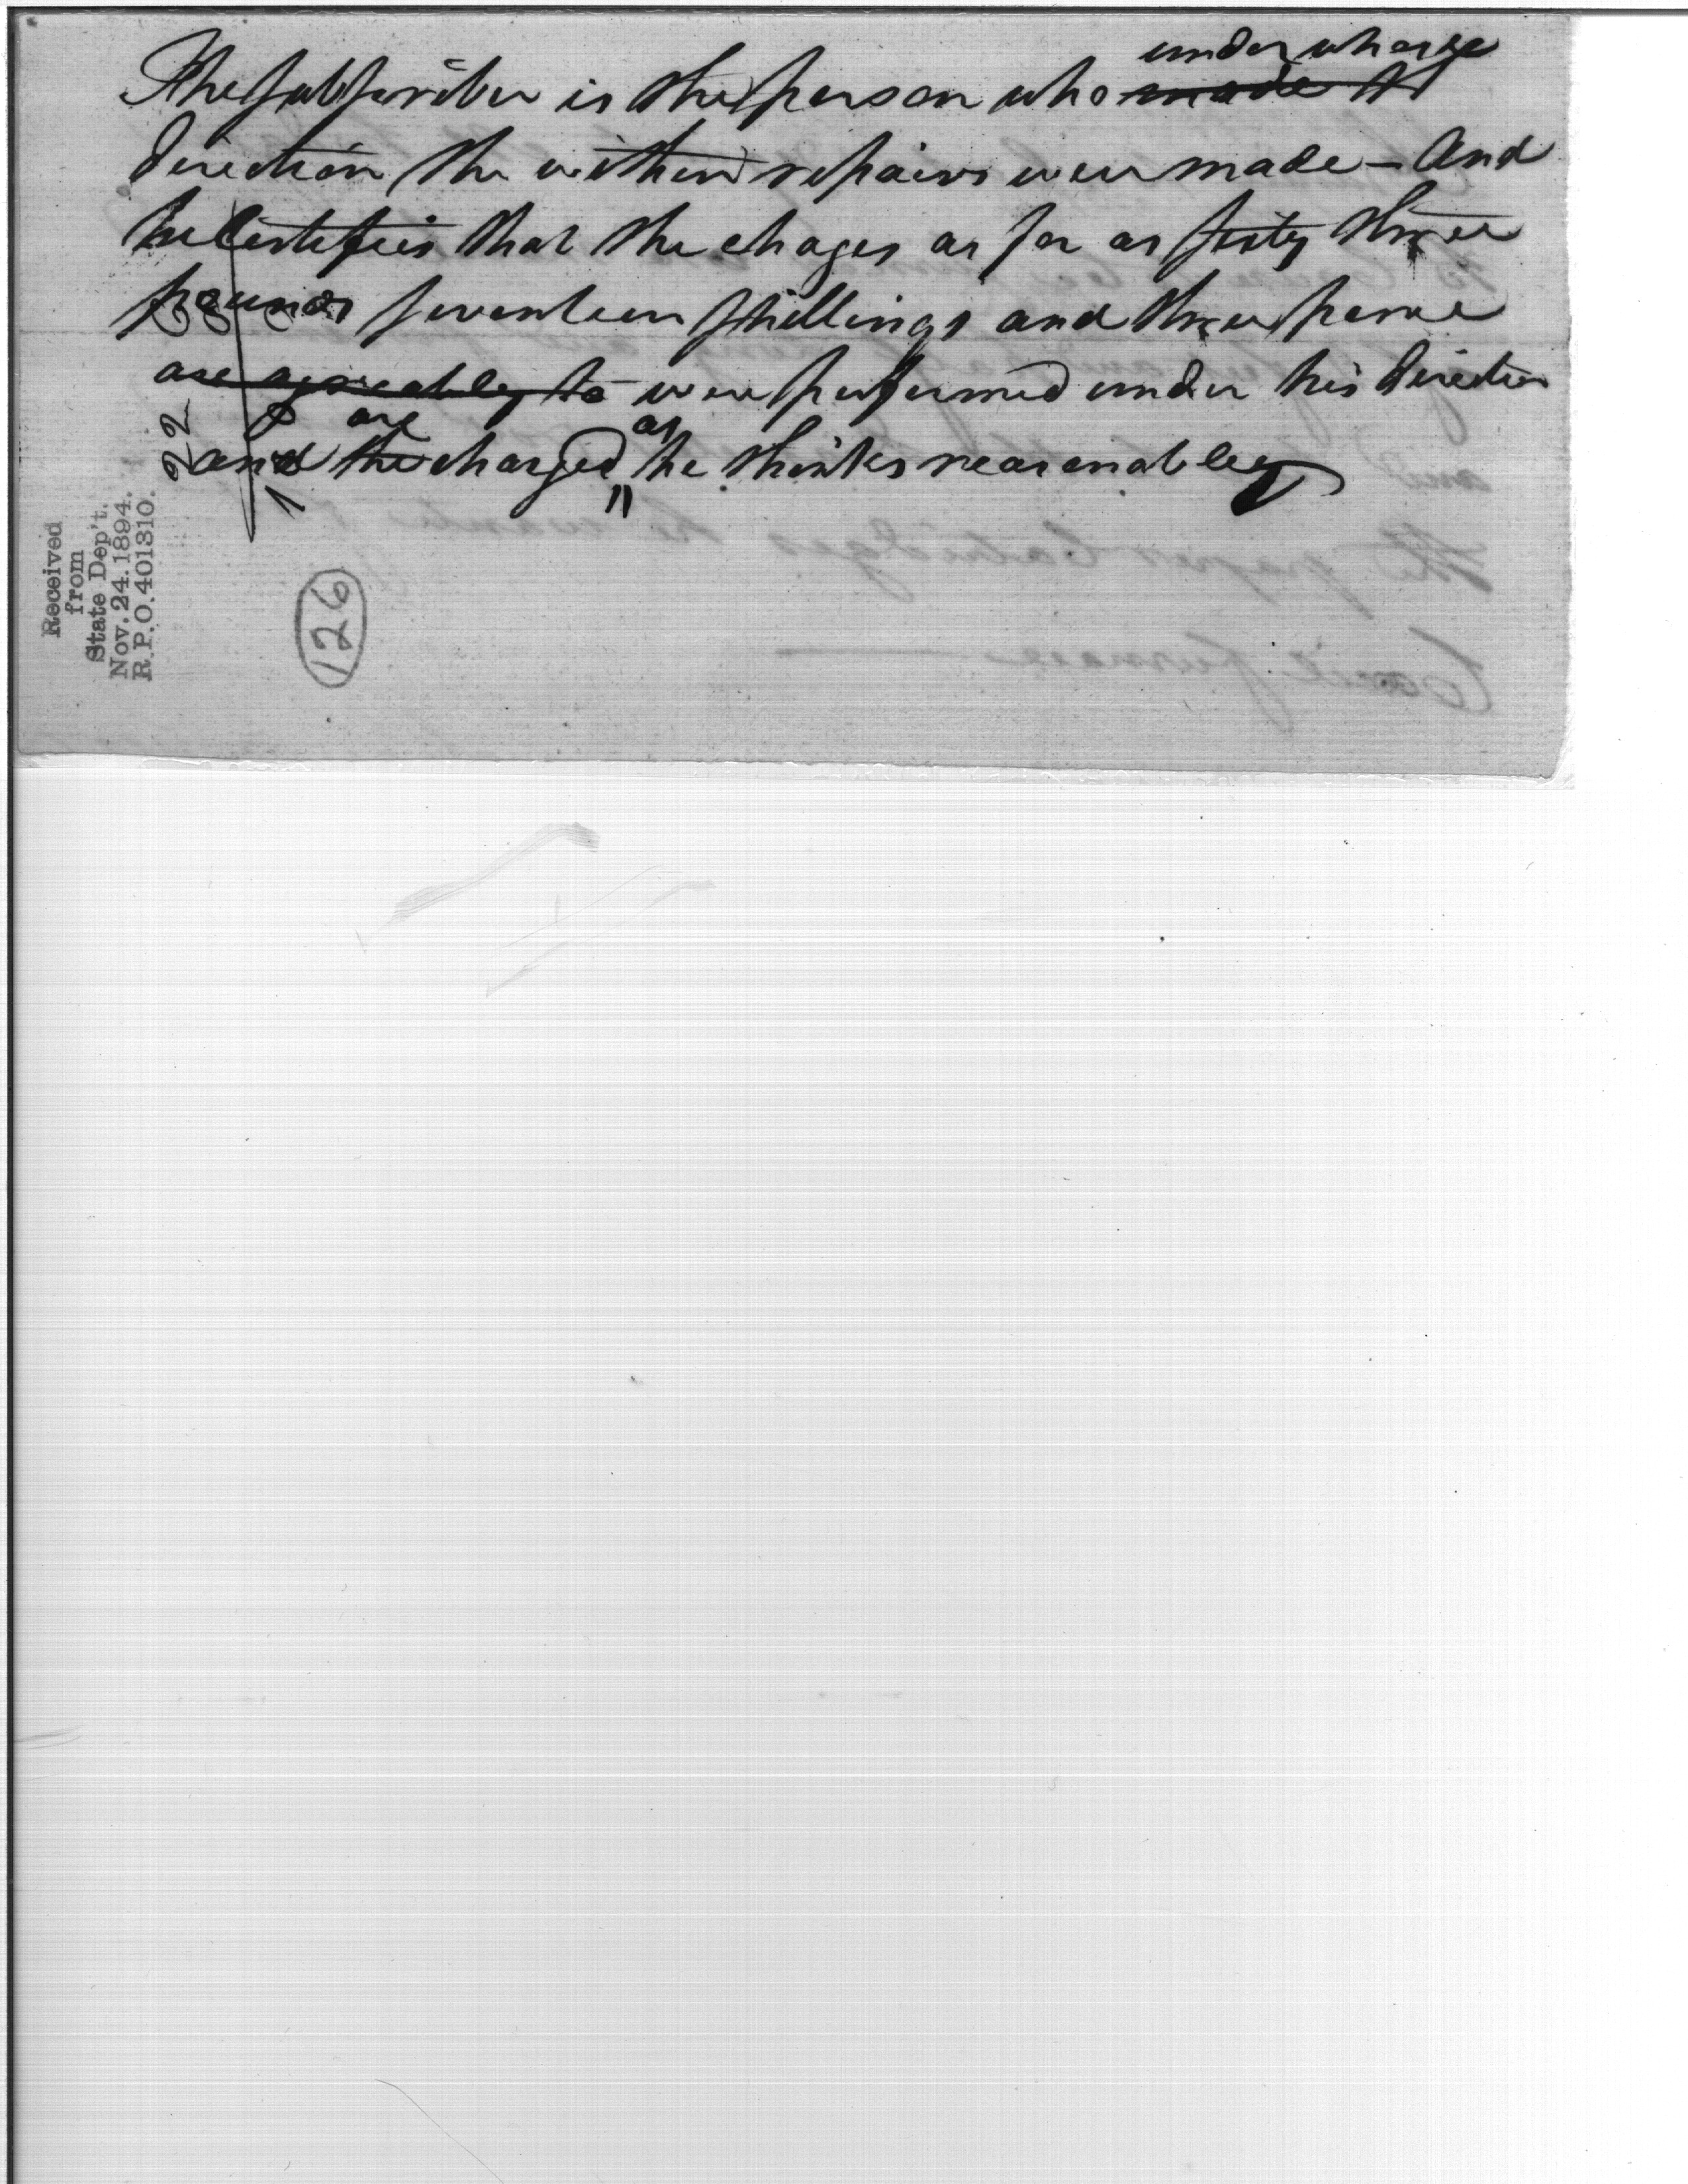 under whose
The subscriber is the person who made th
direction the within repairs were made – And
he Certifies that the chages as far as sixty three
pounds seventeen shillings and three pence
are agreeably to were performed under his direction
are as
and the charged he thinks reasonabley
22
Received
from
State Dep't.
Nov. 24. 1894.
R.P.O. 401310.
126